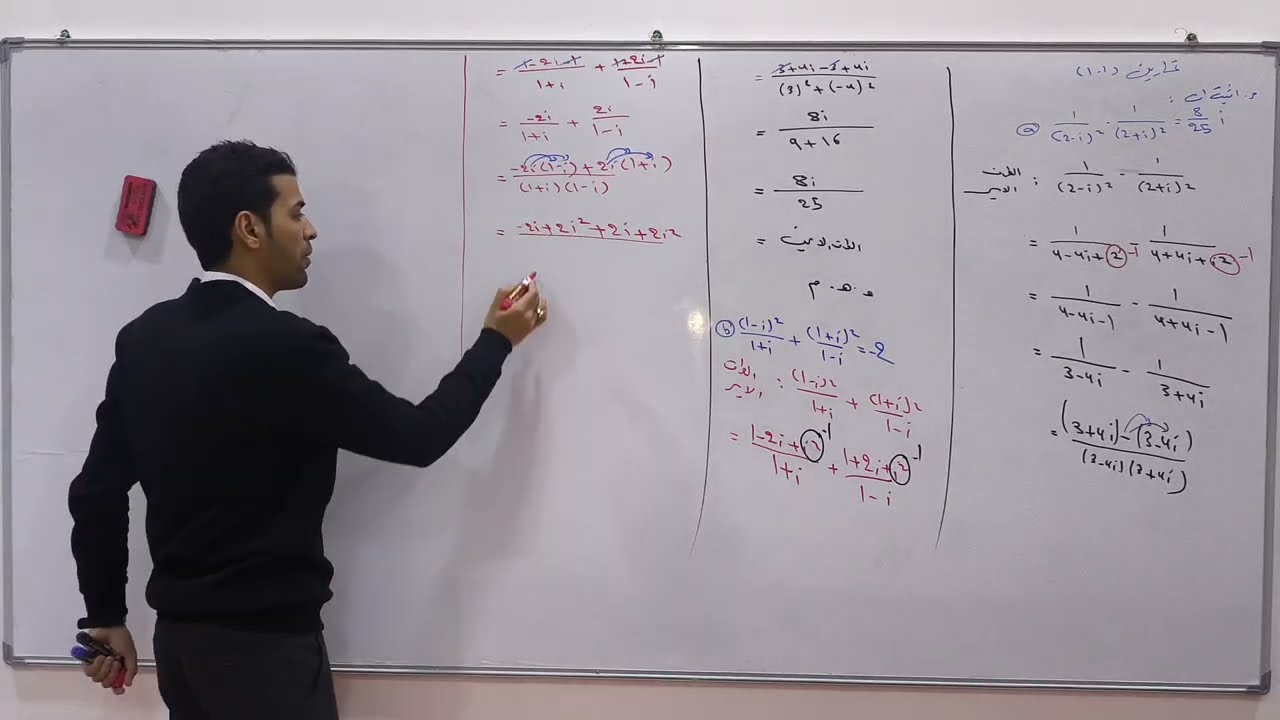 تمارين (1.1)
س. اثبت ان :
ⓐ 1/(2-i)² - 1/(2+i)² = 8/25 i
الطرف الايسر : 1/(2-i)² - 1/(2+i)²
= 1/(4-4i+i²) -1 - 1/(4+4i+i²) -1
= 1/(4-4i-1) - 1/(4+4i-1)
= 1/(3-4i) - 1/(3+4i)
= (3+4i)-(3-4i) / (3-4i)(3+4i)
= 3+4i-3+4i / (3)²+(-4)²
= 8i / 9+16
= 8i / 25
= الطرف الايمن
و.هـ.م
ⓑ (1-i)²/1+i + (1+i)²/1-i = -2
الطرف الايسر : (1-i)²/1+i + (1+i)²/1-i
= 1-2i+i² -1 / 1+i + 1+2i+i² -1 / 1-i
= 1-2i-1 / 1+i + 1+2i-1 / 1-i
= -2i/1+i + 2i/1-i
= -2i(1-i)+2i(1+i) / (1+i)(1-i)
= -2i+2i²+2i+2i²